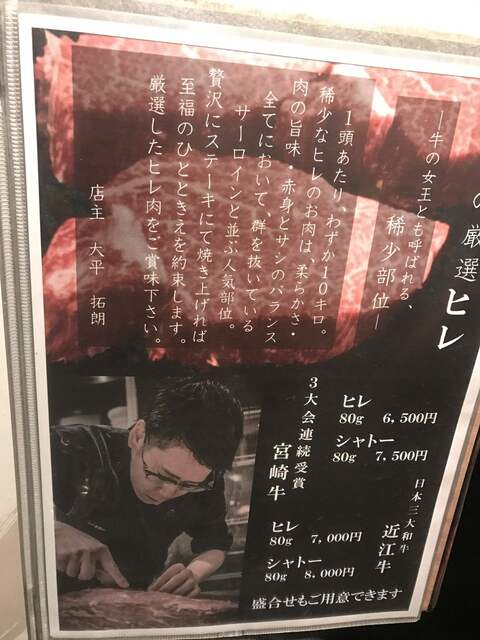 の厳選ヒレ
―牛の女王とも呼ばれる、
稀少部位―
1頭あたり、わずか10キロ。
稀少なヒレのお肉は、柔らかさ・
肉の旨味・赤身とサシのバランス
全てにおいて、群を抜いている
サーロインと並ぶ人気部位。
贅沢にステーキにて焼き上げれば
至福のひとときえを約束します。
厳選したヒレ肉をご賞味下さい。
店主 大平 拓朗
ヒレ
80g 6,500円
シャトー
80g 7,500円
3大会連続受賞
宮崎牛
日本三大和牛
近江牛
ヒレ
80g 7,000円
シャトー
80g 8,000円
盛合せもご用意できます